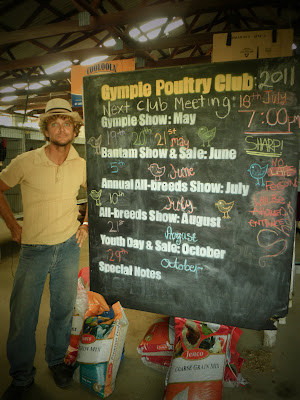 COOLOOLA
Gympie Poultry Club: 2011
Next Club Meeting: 18th July
7:00pm
SHARP!
Gympie Show: May
19th 20th 21st May
Bantam Show & Sale: June
5th June
Annual All-breeds Show: July
10th July
All-breeds Show: August
21st August
Youth Day & Sale: October
29th October
Special Notes
NO LATE
COARSE GRAIN MIX